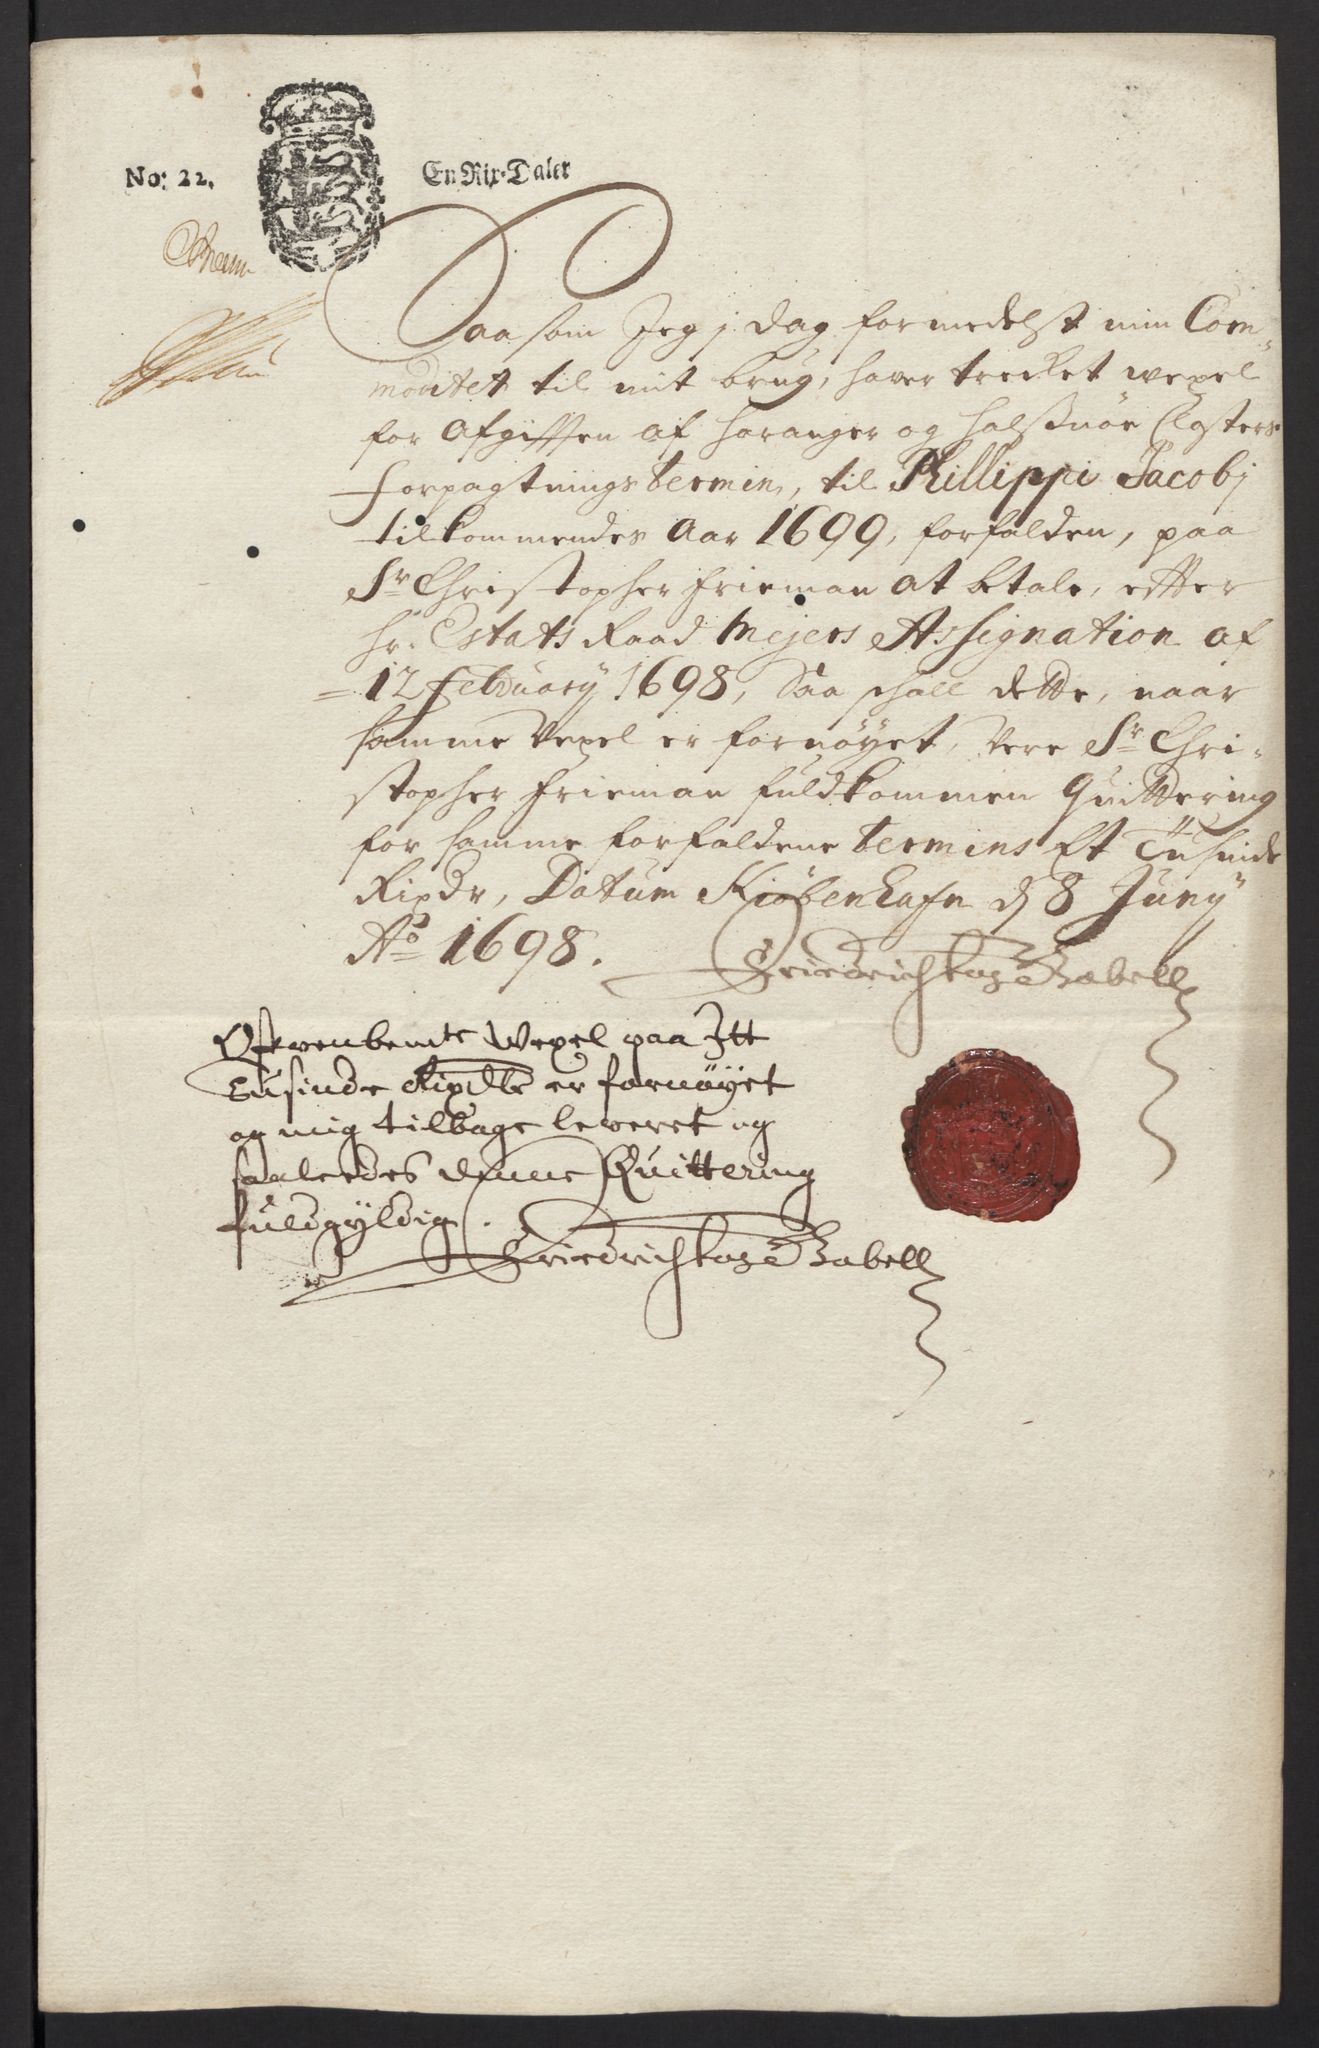 No: 22.
En Rix-Daler
Saa som Jeg j dag formedelst min Com-
moditet til mit brug, hafver trecket wexel
for Afgifften af Haranger og Halsnöe Closters
Forpagtnings termin, til Phillippi Jacobj
tilkommendes Aar 1699, forfalden, paa
Sr Christopher Frieman at betale, efter
Hr. Estats Raad Mejers Assignation af
12 February 1698, Saa schall dette, naar
samme Vexel er fornöyet, Vere Sr Chri-
stopher Frieman fuldkommen Quittering
for samme forfaldene termins Et Tusinde
Rixdr, Datum Kiöbenhafn d 8 Juny
Ao 1698.
Friedrich Gabell
Ofwenbemte Wexel paa Itt
Tusinde Rixdlr er fornöyet
og mig tilbage leweret og
saaledes denne Quittering
fuldgyldig.
Friedrich Gabell